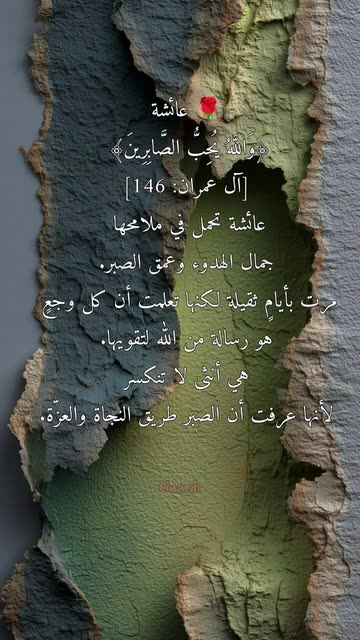 عائشة 🌹
﴿وَاللَّهُ يُحِبُّ الصَّابِرِينَ﴾
[آل عمران: 146]
عائشة تحمل في ملامحها
جمال الهدوء وعمق الصبر.
مرت بأيامٍ ثقيلة لكنها تعلمت أن كل وجعٍ
هو رسالة من الله لتقويها.
هي أنثى لا تنكسر
لأنها عرفت أن الصبر طريق النجاة والعزّة.